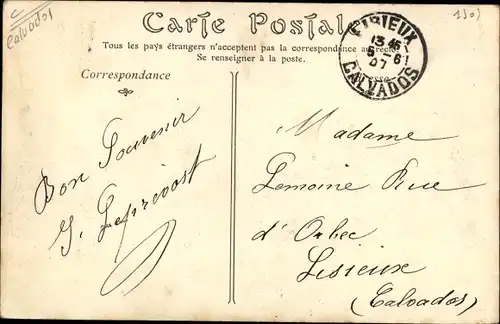 C
Calvados
Carte Postale
Tous les pays étrangers n'acceptent pas la correspondance au recto
Se renseigner à la poste.
Correspondance
LISIEUX
5 - 6
07
CALVADOS
Bon Souvenir
G. Leprévost
Madame
Lemoine Rue
d'Orbec
Lisieux
(Calvados)